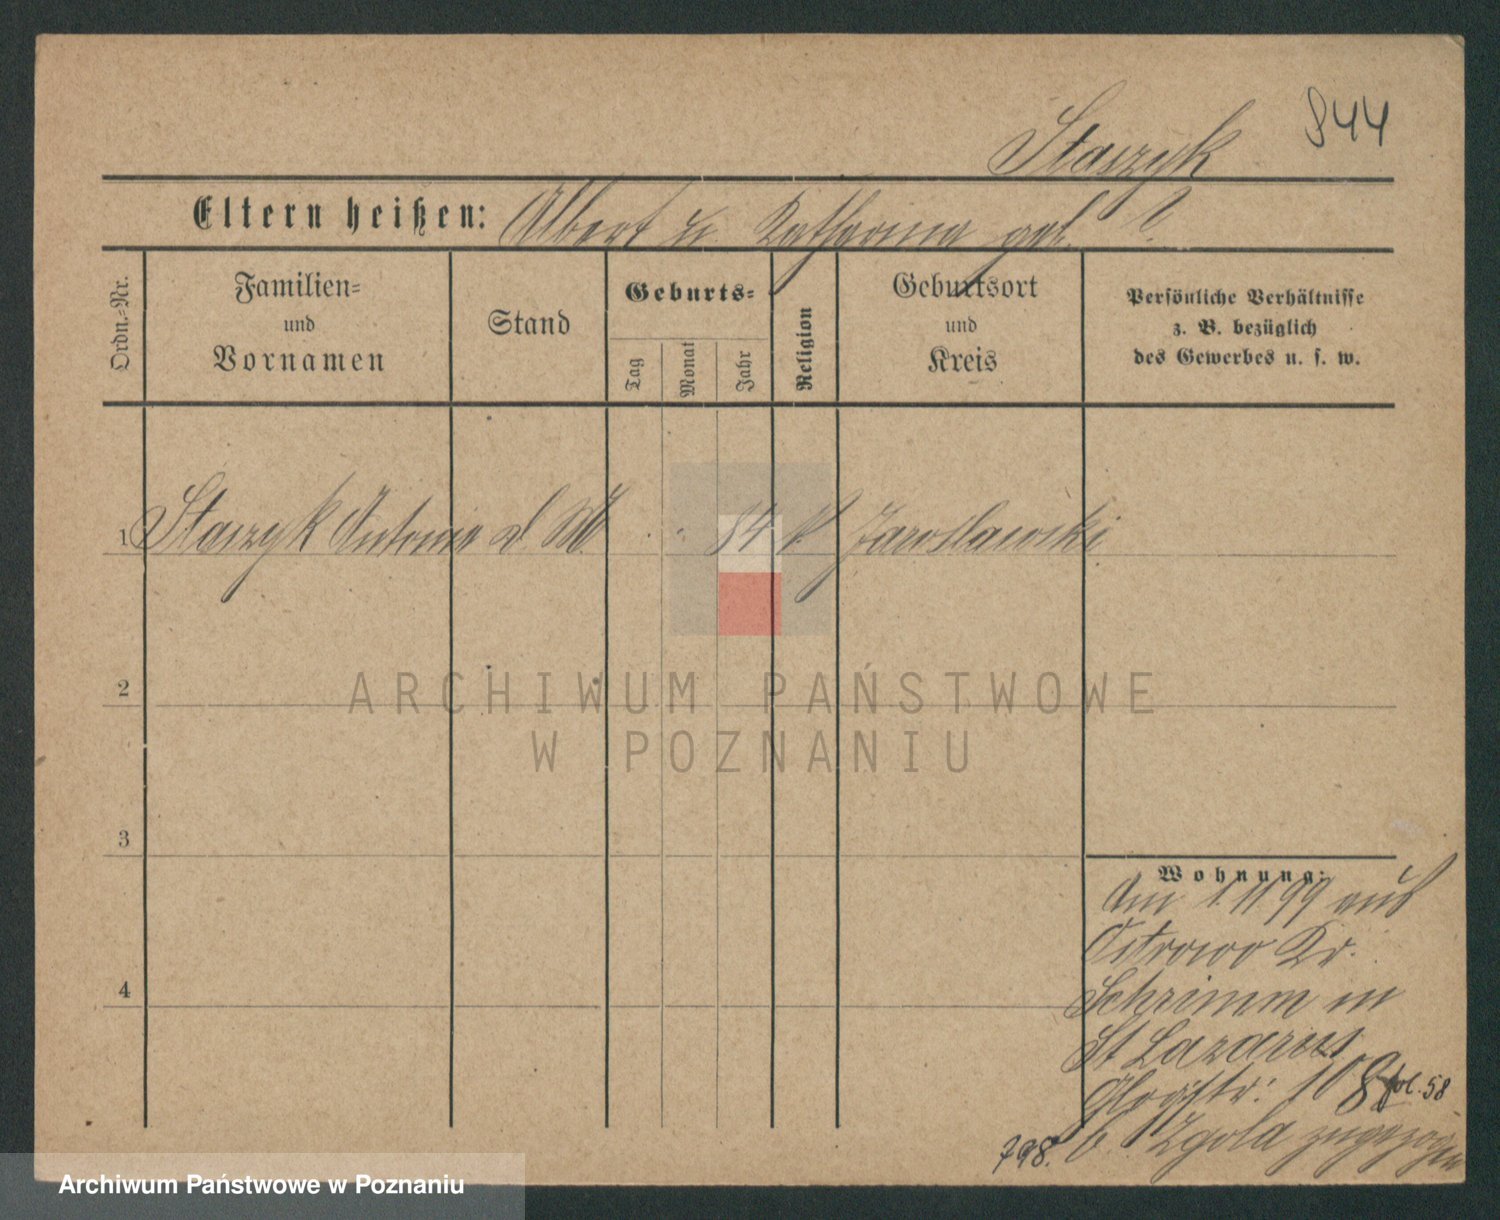 844
Staszyk
Eltern heißen: Albert u Katharina geb. ?
Ordn.-Nr.
Familien-
und
Vornamen
Stand
Geburts-
Tag
Monat
Jahr
Religion
Geburtsort
und
Kreis
Persönliche Verhältnisse
z. B. bezüglich
des Gewerbes u. s. w.
1 Staszyk Antonie d. M. 84 k Jaroslawski
2
ARCHIWUM PAŃSTWOWE
W POZNANIU
3
Wohnung:
Am 1 11 99 aus
Ostrowo Kr.
4
Schrimm in
St Lazarus
Glog str: 108 fol. 58
798. b. Zgola zugezogen
Archiwum Państwowe w Poznaniu